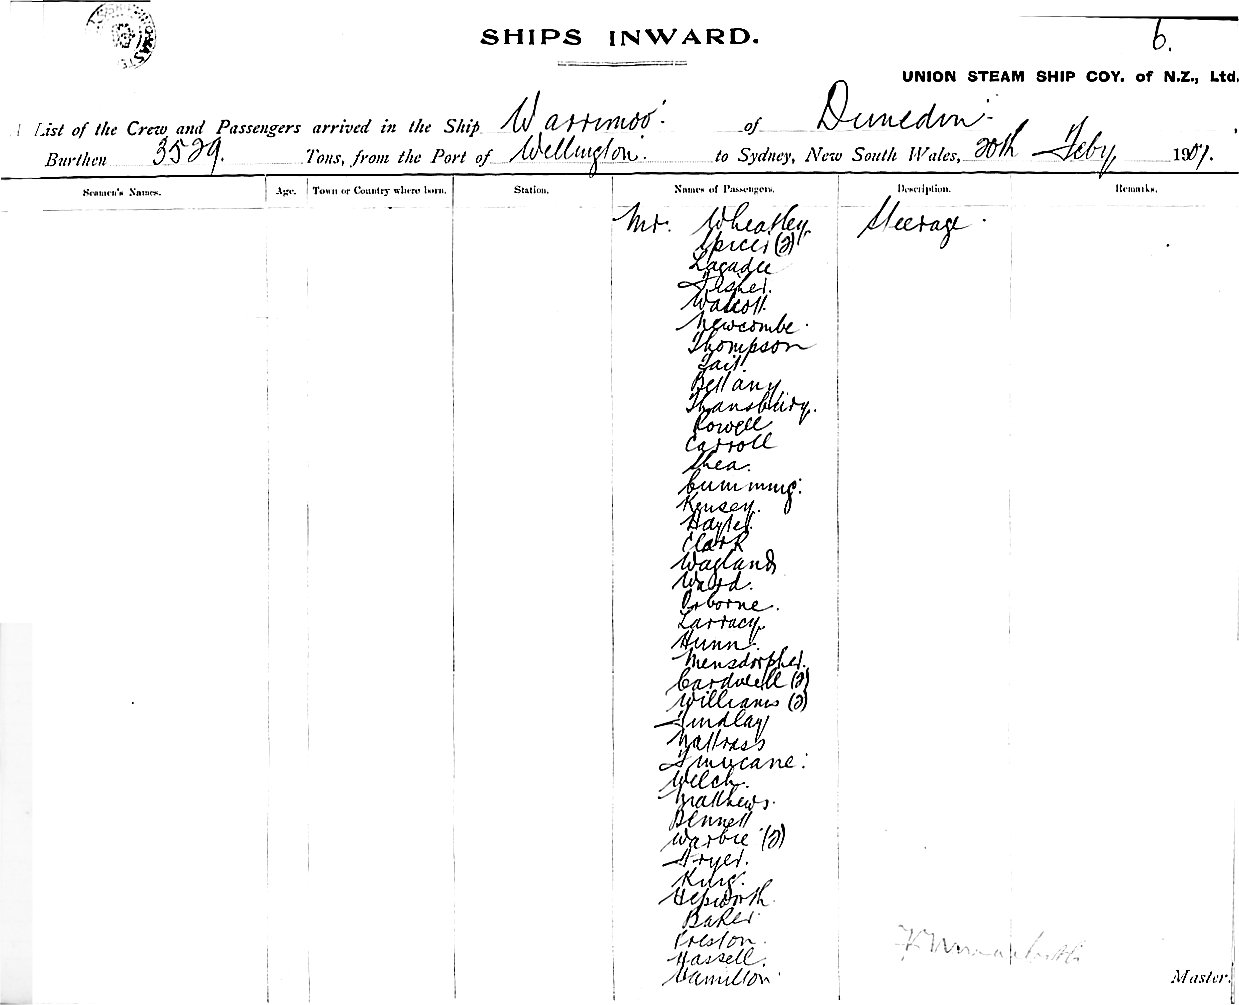 SHIPS INWARD.
6.
UNION STEAM SHIP COY. of N.Z., Ltd.
List of the Crew and Passengers arrived in the Ship Warrimoo of Dunedin
Burthen 3529. Tons, from the Port of Wellington. to Sydney, New South Wales, 20th Feby, 1901.
Seamen's Names. Age. Town or Country where born. Station. Names of Passengers. Description. Remarks.
Mr. Wheatley Steerage
Spicer (2)
Lagadu
Fisher.
Walcott
Newcombe
Thompson
Tait
Bellany
Thansbury.
Rowell
Carroll
Shea.
Cumming
Kensey.
Hayter
Clark
Wagland
Ward.
Osborne.
Larracy
Hunn
Mensdorpher.
Cardwell (2)
Williams (2)
Findlay
Nattrass
Finucane
Welch.
Matthews.
Bennett
Warbie (2)
Fryer.
King.
Hepworth
Baker
Preston.
Hassell.
Hamilton
Master.